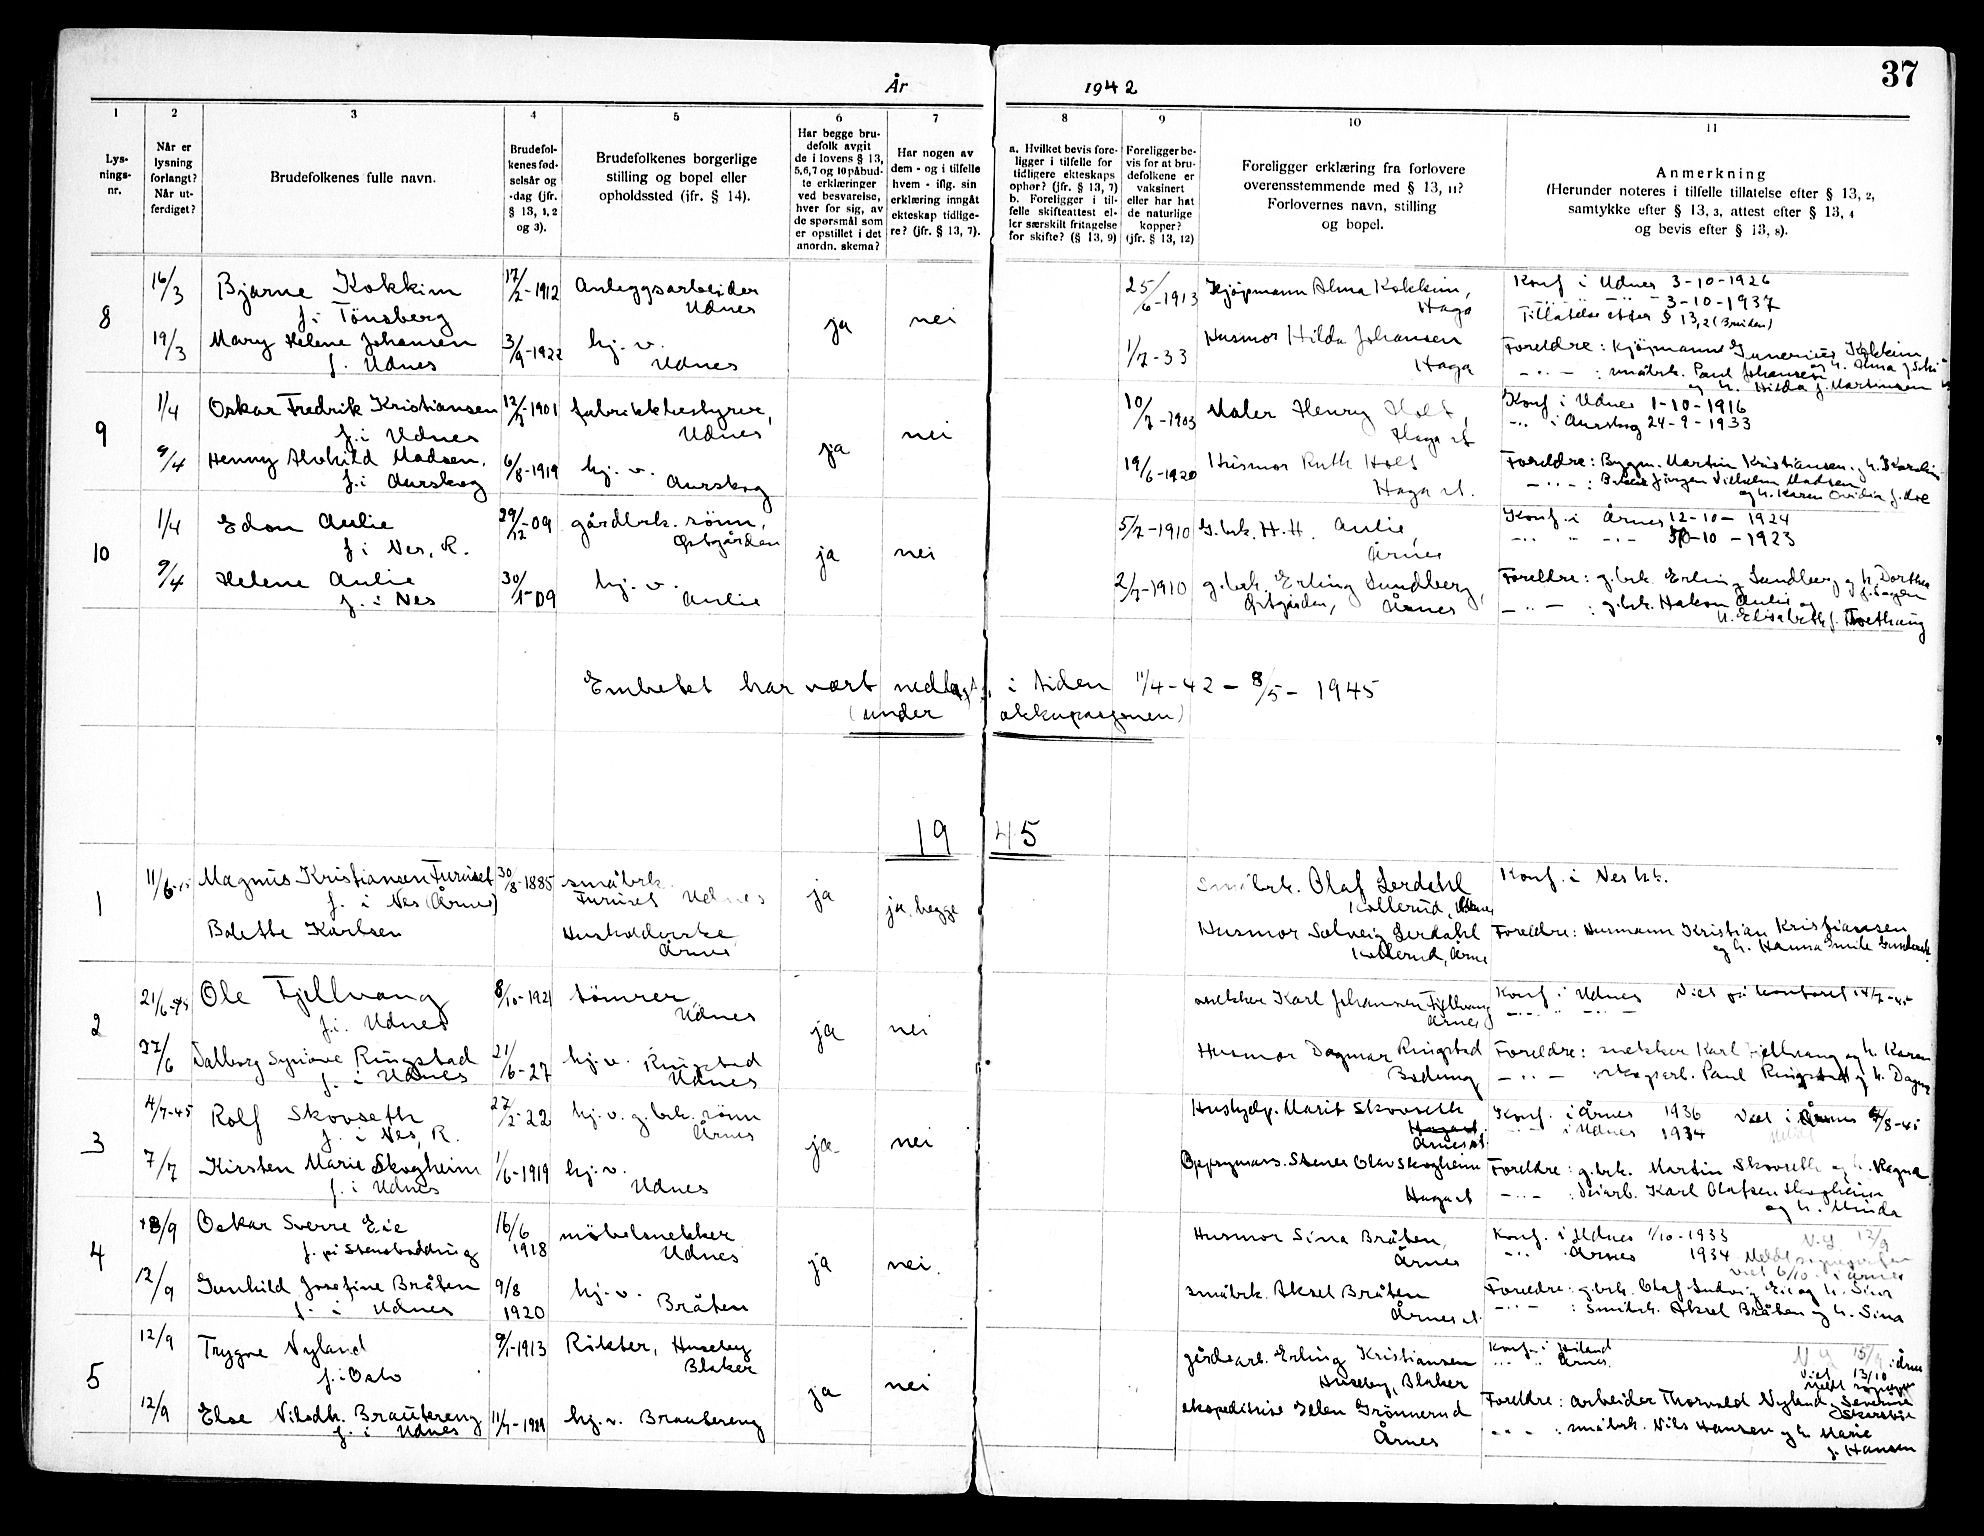 37
År 1942
1 2 3 4 5 6 7 8 9 10 11
Lys-
nings-
nr.
Når er
lysning
forlangt?
Når ut-
ferdiget?
Brudefolkenes fulle navn.
Brudefol-
kenes fød-
selsår og
-dag (jfr.
§ 13, 1, 2
og 3).
Brudefolkenes borgerlige
stilling og bopel eller
opholdssted (jfr. § 14).
Har begge bru-
defolk avgit
de i lovens § 13,
5,6,7 og 10 påbud-
te erklæringer
ved besvarelse,
hver for sig, av
de spørsmål som
er opstillet i det
anordn. skema?
Har nogen av
dem - og i tilfelle
hvem - iflg. sin
erklæring inngått
ekteskap tidlige-
re? (jfr. § 13, 7).
a. Hvilket bevis fore-
ligger i tilfelle for
tidligere ekteskaps
ophør? (jfr. § 13, 7)
b. Foreligger i til-
felle skifteattest el-
ler særskilt fritagelse
for skifte? (§ 13, 9)
Foreligger be-
vis for at bru-
defolkene er
vaksinert
eller har hat
de naturlige
kopper?
(jfr. § 13, 12)
Foreligger erklæring fra forlovere
overensstemmende med § 13, 11?
Forlovernes navn, stilling
og bopel.
Anmerkning
(Herunder noteres i tilfelle tillatelse efter § 13, 2,
samtykke efter § 13, 3, attest efter § 13, 4
og bevis efter § 13, 8).
8
16/3 Bjarne Kokkim 17/2-1912 Anleggsarbeider 25/6-1913 Kjøpmann Alma Kokkim, Konf i Udnes 3-10-1926
f. i Tönsberg Udnes ja nei Haga 3-10-1937
Tillatelse efter § 13,2 (Bruden)
19/3 Mary Helene Johansen 3/9-1922 hj. v. 1/7-33 Husmor Hilda Johansen Foreldre: Kjøpmann Gunerius Kokkim
f. Udnes Udnes Haga og h. Alma f.
: småbrk. Paul Johansen
og h. Hilda f. Martinsen
9
1/4 Oskar Fredrik Kristiansen 12/7-1901 fabrikkbestyrer, 10/7-1903 Maler Henry Holt, Konf i Udnes 1-10-1916
f. i Udnes Udnes ja nei Haga st i Aurskog 24-9-1933
9/4 Henny Alvhild Madsen, 6/8-1919 hj. v. 19/6-1920 Husmor Ruth Holt Foreldre: Byggm. Martin Kristiansen og h.
f. i Aurskog Aurskog Haga st. : Jörgen Vilhelm Madsen
og h. Karen
10
1/4 Edon Aulie 29/12-09 gårdbrk. sönn, 5/7-1910 G.brk. H. H. Aulie, Konf. i Årnes 12-10-1924
f. i Nes, R. Østgården ja nei Årnes -10-1923
9/4 Helene Aulie 30/1-09 hj. v. 2/7-1910 g.brk. Erling Sundberg, Foreldre: g.brk. Erling Sundberg og h. Dorthea
f. i Nes Aulie Østgården, Årnes : g.brk. Hakon Aulie og
h. Elisabeth f.
Embetet har vært nedlagt i tiden 11/4-42 - 8/5-1945
(under okkupasjonen)
1945
1
11/6-45 Magnus Kristiansen Furuset 30/8-1885 småbrk. småbrk. Olaf Lerdahl Konf. i Nes
f. i Nes (Årnes) Furuset Udnes ja ja, begge Kollerud,
Bolette Karlsen Husholderske Husmor Solveig Lerdahl Foreldre: Husmann Kristian Kristiansen
Årnes Kollerud, Årnes og h. Hanna Emilie
2
21/6-45 Ole Fjellvang 8/10-1921 tömrer, snekker Karl Johansen Fjellvang Konf. i Udnes Viet på kontoret 14/7-45
f. i. Udnes Udnes ja nei Årnes
27/6 Valborg Synöve Ringstad 21/6-27 hj. v. Ringstad Husmor Dagmar Ringstad Foreldre: snekker Karl Fjellvang og h. Karen
f. i Udnes Udnes Bodung : skogsarb. Paul Ringstad og h. Dagmar
3
4/7-45 Rolf Skovseth 27/2-22 hj. v. g.brk. sönn Hushjelp. Marit Skovseth Konf. i Årnes 1936 Viet i Årnes 4/8-45
f. i Nes, R. Årnes ja nei Årnes st. i Udnes 1934
7/7 Kirsten Marie Skogheim 1/6-1919 hj. v. Oppsynmans. Stener Olav Skogheim Foreldre: g.brk. Martin Skovseth og h. Ragna
f. i Udnes Udnes Haga st : Karl Olafsen Skogheim
og h. Minda
4
/9 Oskar Sverre Eie 16/6 1918 möbelsnekker Husmor Sina Bråten, Konf. i Udnes 1/10-1933
f. på Udnes ja nei. Årnes Årnes 1934
viet 6/10 i Årnes
12/9 Gunhild Josefine Bråten 9/8 1920 hj. v. småbrk. Aksel Bråten Foreldre: g.brk. Olaf Ludvig Eie og h. Sina
f. i Udnes Bråten Årnes st. : småbrk. Aksel Bråten og h. Sina
5
12/9 Trygve Nyland 9/1-1913 Rökter, Huseby gårdsarb. Erling Kristiansen Konf. i
f. i Oslo Blaker ja nei Huseby, Blaker Årnes.
Viet 13/10
12/9 Else Brautereng hj. v. Brautereng ekspeditrise Ellen Grönnerud Foreldre: arbeider Thorvald Nyland
f. i Udnes Årnes : småbrk. Nils Hansen og h. Marie
f. Hansen